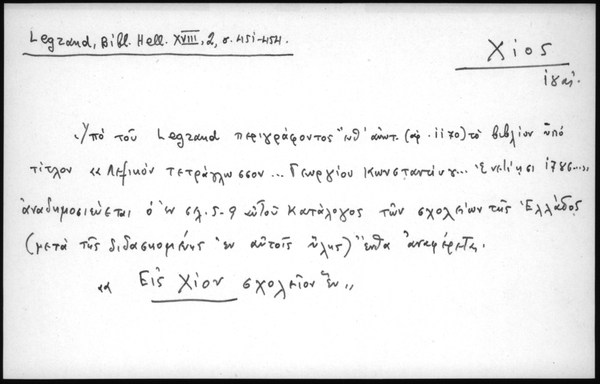 Legrand, Bibl. Hell. XVIII, 2, σ. 451-454.
Χίος
Ὑπό τοῦ Legrand περιγράφοντος ἔνθ' ἀνωτ. (ἀρ. 1170) τό βιβλίον ὑπό
τίτλον «Λεξικόν τετράγλωσσον... Γεωργίου Κωνσταντίνου... Ἐνετίησι 1786...»
ἀναδημοσιεύεται ὁ ἐν σλ. 5-9 αὐτοῦ κατάλογος τῶν σχολείων τῆς Ἑλλάδος
(μετά τῆς διδασκομένης ἐν αὐτοῖς ὕλης) ἔνθα ἀναφέρεται.
«Εἰς Χίον σχολεῖον ἕν»